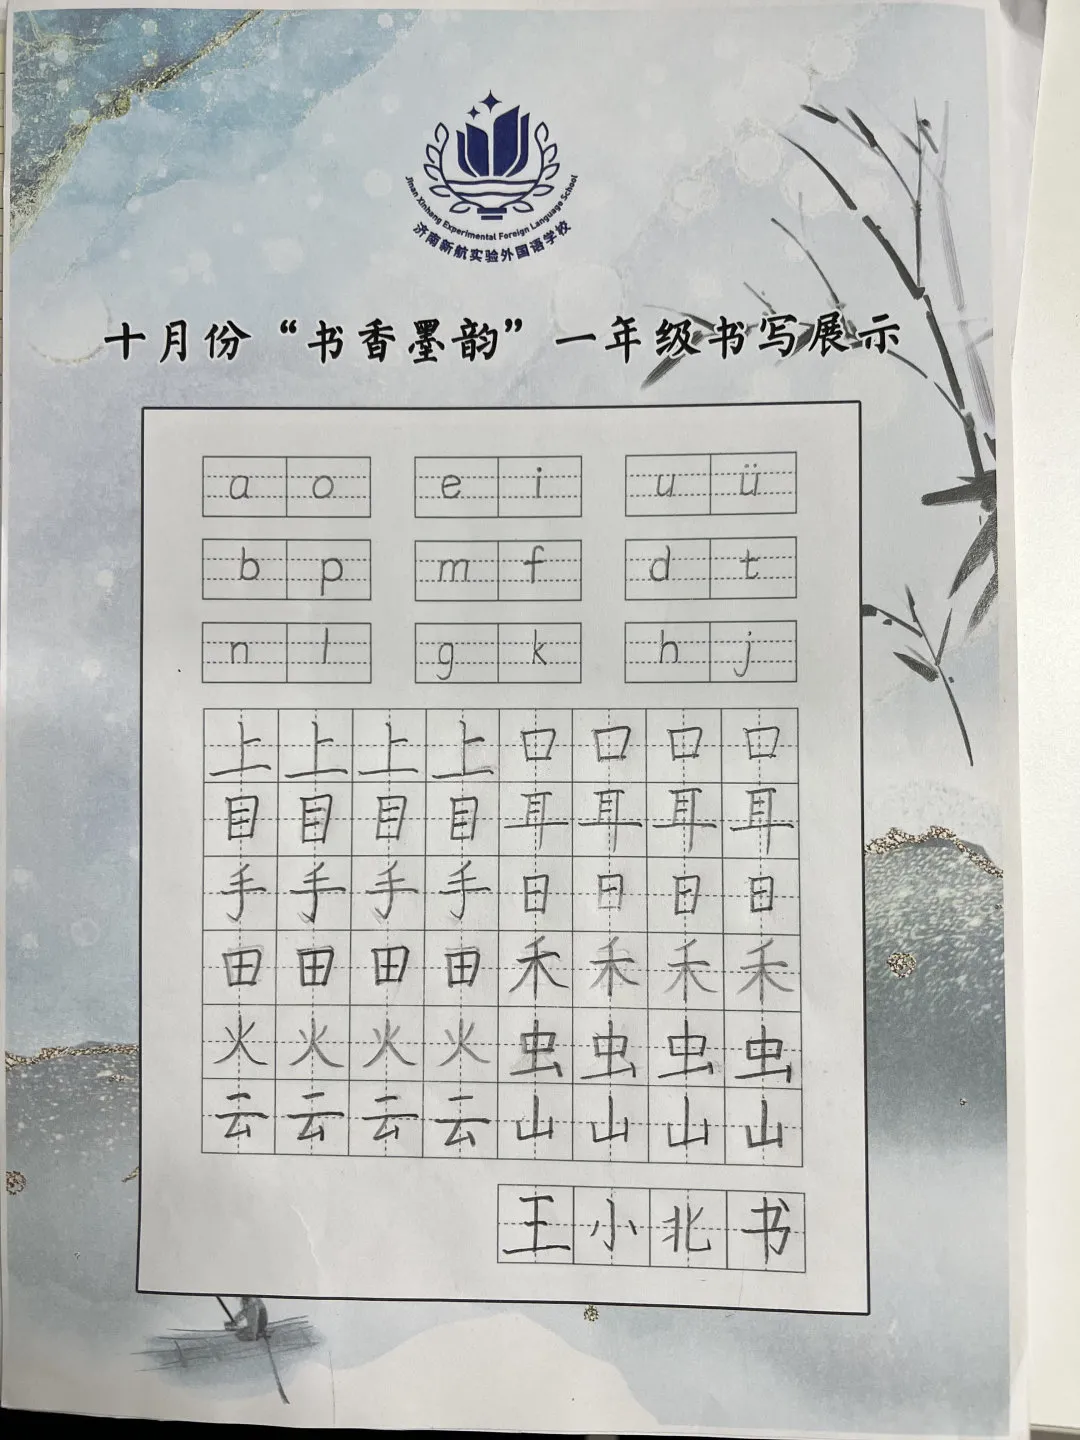 Jinan Xinhang Experimental Foreign Language School
济南新航实验外国语学校
十月份“书香墨韵”一年级书写展示
a o e i u ü
b p m f d t
n l g k h j
上上上上口口口口
目目目目耳耳耳耳
手手手手日日日日
田田田田禾禾禾禾
火火火火虫虫虫虫
云云云云山山山山
王小北书